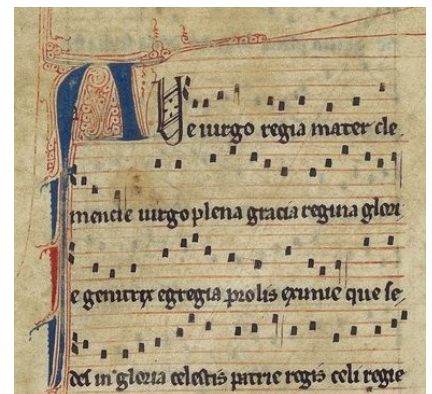 AUe uirgo regia mater cle
mencie uirgo plena gracia regina glori
e genitrix egregia prolis eximie que se
des in gloria celestis patrie regis celi regie